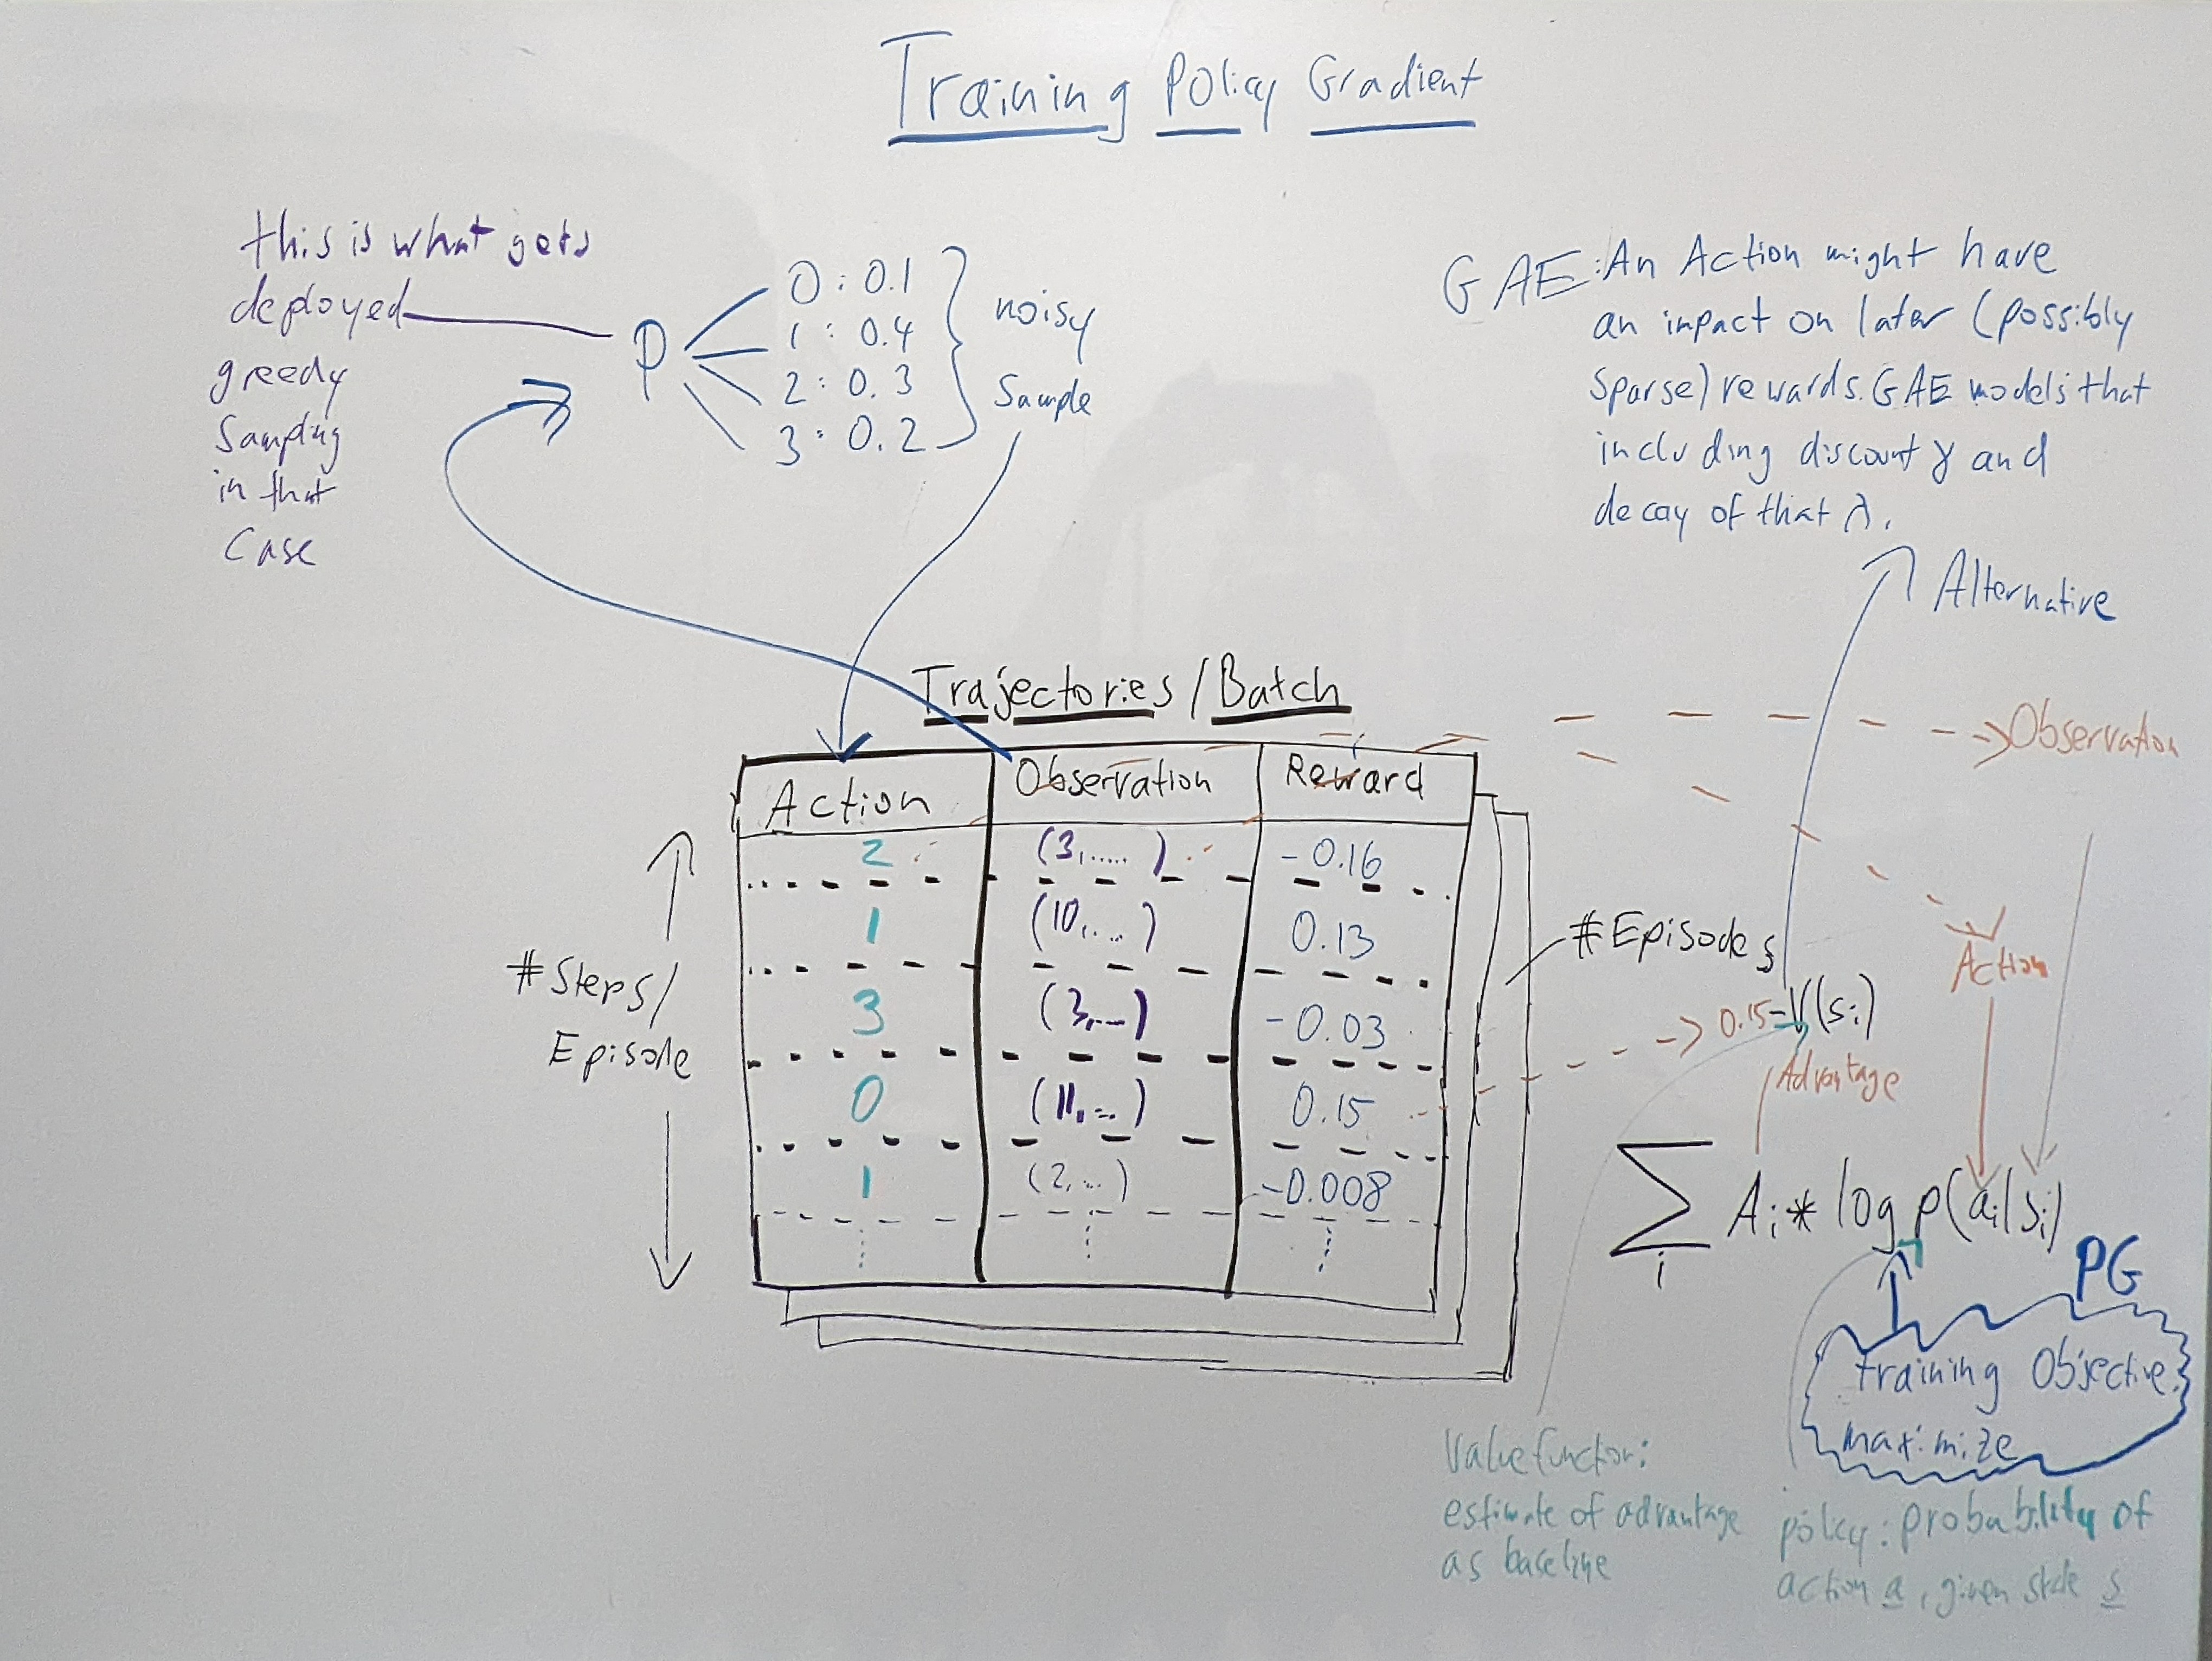 Training Policy Gradient
this is what gets
deployed
greedy
Sampling
in that
Case
p
0 : 0.1
1 : 0.4
2 : 0.3
3 : 0.2
noisy
Sample
GAE: An Action might have
an impact on later (possibly
sparse) rewards. GAE models that
including discount γ and
decay of that λ.
Alternative
Trajectories / Batch
Action Observation Reward
2 (3,.....) -0.16
1 (10,....) 0.13
3 (3,...) -0.03
0 (11,...) 0.15
1 (2,...) -0.008
#Steps/
Episode
#Episodes
Observation
Action
0.15-V(si)
Advantage
∑ Ai * log p(ai|si)
i
PG
training Objective:
maximize
Value function:
estimate of advantage
as baseline
policy: probability of
action a, given state s